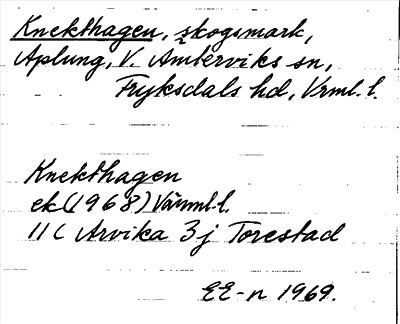 Knekthagen, skogsmark,
Aplung, V. Ämterviks sn,
Fryksdals hd, Vrml. l.
Knekthagen
ek (1968) Värml. l.
11 C Arvika 3 j Torestad
EE-n 1969.